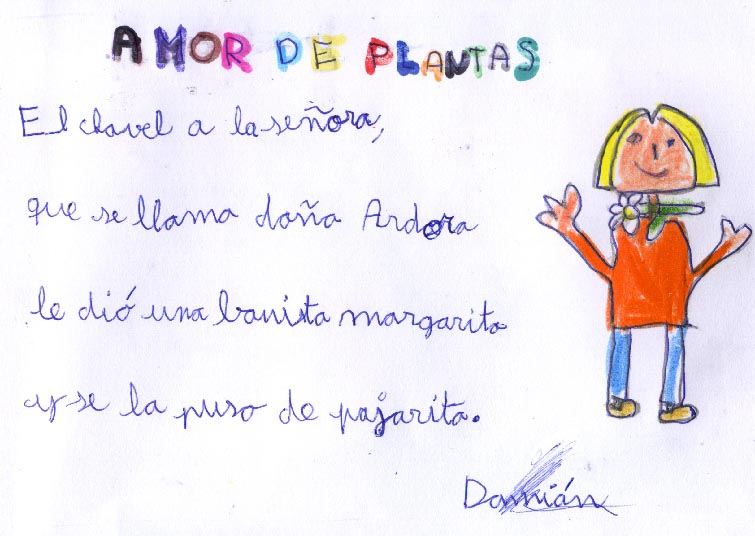 AMOR DE PLANTAS
El clavel a la señora,
que se llama doña Ardora
le dió una banista margarita
y se la puso de pajarita.
Damián